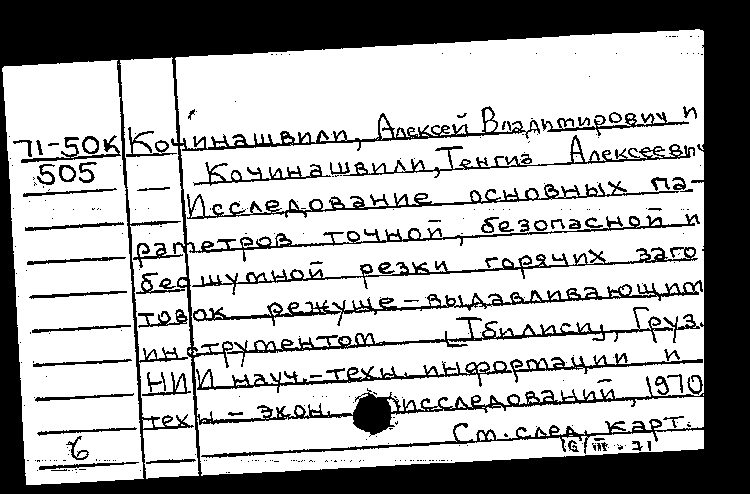 71-50К Кочинашвили, Алексей Владимирович и
505 Кочинашвили, Тенгиз Алексеевич
Исследование основных па-
раметров точной, безопасной и
бесшумной резки горячих заго-
товок режуще-выдавливающим
инструментом. [Тбилиси], Груз.
НИИ науч.-техн. информации и
техн-экон. исследований, 1970
6 См. след. карт.
16/III-71